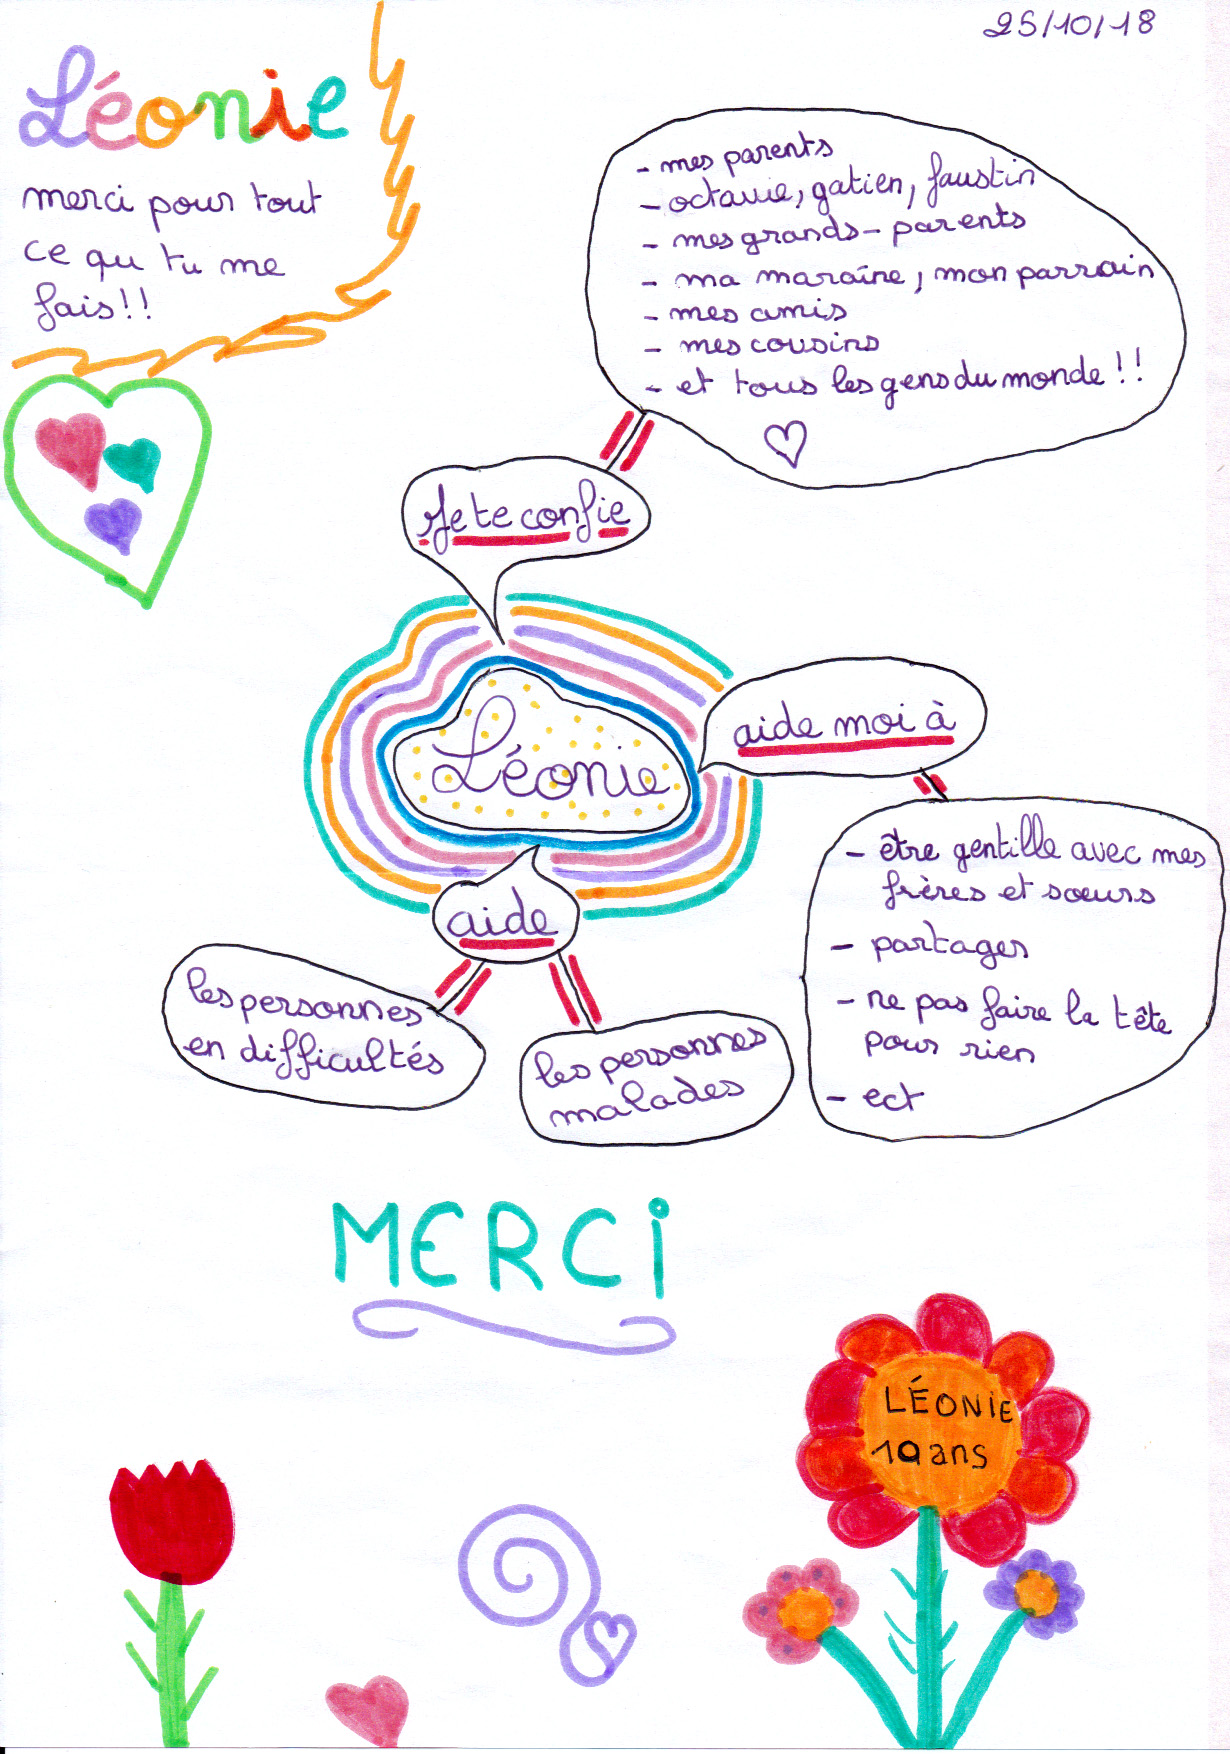 25/10/18
Léonie
merci pour tout
ce qu tu me
fais!!
- mes parents
- octavie, gatien, faustin
- mes grands-parents
- ma maraîne, mon parrain
- mes amis
- mes cousins
- et tous les gens du monde!!
Je te confie
aide moi à
Léonie
- être gentille avec mes
frères et sœurs
- partages
- ne pas faire la tête
pour rien
- ect
aide
les personnes
en difficultés
les personnes
malades
MERCi
LÉONiE
10 ans